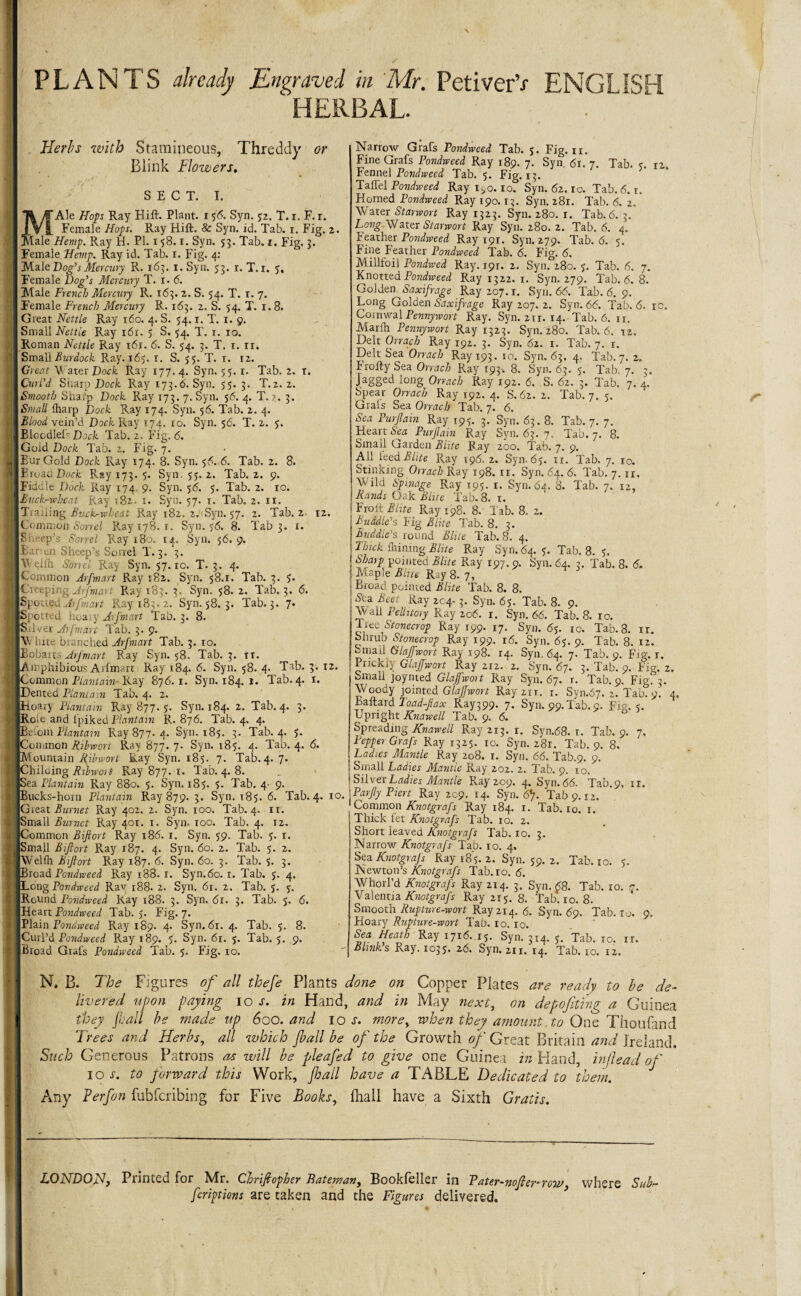 PLANTS already Engraved in Mr. Petiver's ENGLISH
HERBAL.
Herbs with Stamineous, Threddy or
Blink Flowers.
SECT. I.
MAle Hops Ray Hist. Plant. 156. Syn. 52. T. 1. F. 1.
Female Hops. Ray Hist. & Syn. id. Tab. 1. Fig. 2.
Male Hemp. Ray H. Pl. 158. 1. Syn. 53. Tab. 1. Fig. 3.
Female Hemp. Ray id. Tab. 1. Fig. 4:
Male Dog's Mercury R. 163. 1. Syn. 53. 1. T. 1. 5.
Female Dog's Mercury T. 1. 6.
Male French Mercury R. 163. 2. S. 54. T. 1. 7.
Female French Mercury R. 163. 2. S. 54. T. 1. 8.
Great Nettle Ray 160. 4. S. 54. 1. T. 1. 9.
Small Nettle Ray 161. 5 S. 54. T. 1. 10.
Roman Nettle Ray 161. 6. S. 54. 3. T. 1. 11.
Small Burdock Ray. 165. 1. S. 55. T. 1. 12.
Great Water Dock Ray 177. 4. Syn. 55. 1. Tab. 2. 1.
Curl'd Sharp Dock Ray 173. 6. Syn. 55. 3. T. 2. 2.
Smooth Sharp Dock Ray 173. 7. Syn. 56. 4. T. 2. 3.
Small sharp Dock Ray 174. Syn. 56. Tab. 2. 4.
Blood vein'd Dock Ray 174. 10. Syn. 56. T. 2. 5.
Bloodless Dock Tab. 2. Fig. 6.
Gold Dock Tab. 2. Fig. 7.
Bur Gold Dock Ray 174. 8. Syn. 56. 6. Tab. 2. 8.
Broad Dock Ray 173. 5. Syn. 55. 2. Tab. 2. 9.
Fiddle Dock Ray 174. 9. Syn. 56. 5. Tab. 2. 10.
Buck-wheat Ray 182. 1. Syn. 57. 1. Tab. 2. 11.
Trailing Buck-wheat Ray 182. 2. Syn. 57. 2. Tab. 2. 12.
Common Sorrel Ray 178. 1. Syn. 56. 8. Tab 3. 1.
Sheep's Sorrel Ray 180. 14. Syn. 56. 9.
Barren Sheep's Sorrel T. 3. 3.
Welsh Sorrel Ray Syn. 57. 10. T. 3. 4.
Common Arsmart Ray 182. Syn. 58. 1. Tab. 3. 5.
Creeping Arsmart Ray 183. 3. Syn. 58. 2. Tab. 3. 6.
Spotted Arsmart Ray 183. 2. Syn. 58. 3. Tab. 3. 7.
Spotted hoary Arsmart Tab. 3. 8.
Silver Arsmart Tab. 3. 9.
White branched Arsmart Tab. 3. 10.
Bobarts Arsmart Ray Syn. 58. Tab. 3. 11.
Amphibious Arsmart Ray 184. 6. Syn. 58. 4. Tab. 3. 12.
Common Plantain Ray 876. 1. Syn. 184. 1. Tab. 4. 1.
Dented Plantain Tab. 4. 2.
Hoary Plantain Ray 877. 5. Syn. 184. 2. Tab. 4. 3.
Rose and spiked Plantain R. 876. Tab. 4. 4.
Besom Plantain Ray 877. 4. Syn. 185. 3. Tab. 4. 5.
Common Ribwort Ray 877. 7. Syn. 185. 4. Tab. 4. 6.
Mountain Ribwort Ray Syn. 185. 7. Tab. 4. 7.
Childing Ribwort Ray 877. 1. Tab. 4. 8.
Sea Plantain Ray 880. 5. Syn. 185. 5. Tab. 4. 9.
Bucks-horn Plantain Ray 879. 3. Syn. 185. 6. Tab. 4. 10.
Great Burnet Ray 402. 2. Syn. 100. Tab. 4. 11.
Small Burnet Ray 401. 1. Syn. 100. Tab. 4. 12.
Common Bistort Ray 186. 1. Syn. 59. Tab. 5. 1.
Small Bistort Ray 187. 4. Syn. 60. 2. Tab. 5. 2.
Welsh Bistort Ray 187. 6. Syn. 60. 3. Tab. 5. 3.
Broad Pondweed Ray 188. 1. Syn. 60. 1. Tab. 5. 4.
Long Pondweed Ray 188. 2. Syn. 61. 2. Tab. 5. 5.
Round Pondweed Ray 188. 3. Syn. 61. 3. Tab. 5. 6.
Heart Pondweed Tab. 5. Fig. 7.
Plain Pondweed Ray 189. 4. Syn. 61. 4. Tab. 5. 8.
Curl'd Pondweed Ray 189. 5. Syn. 61. 5. Tab. 5. 9.
Broad Grass Pondweed Tab. 5. Fig. 10.
Narrow Grass Pondweed Tab. 5. Fig. 11.
Fine Grass Pondweed Ray 189. 7. Syn. 61. 7. Tab. 5. 12.
Fennel Pondweed Tab. 5. Fig. 13.
Tassel Pondweed Ray 190. 10. Syn. 62. 10. Tab. 6. 1.
Horned Pondweed Ray 190. 13. Syn. 281. Tab. 6. 2.
Water Starwort Ray 1323. Syn. 280. 1. Tab. 6. 3.
Long Water Starwort Ray Syn. 280. 2. Tab. 6. 4.
Feather Pondweed Ray 191. Syn. 279. Tab. 6. 5.
Fine Feather Pondweed Tab. 6. Fig. 6.
Millfoil Pondwed Ray. 191. 2. Syn. 280. 5. Tab. 6. 7.
Knotted Pondweed Ray 1322. 1. Syn. 279. Tab. 6. 8.
Golden Saxifrage Ray 207. 1. Syn. 66. Tab. 6. 9.
Long Golden Saxifrage Ray 207. 2. Syn. 66. Tab. 6. 10.
Cornwal Pennywort Ray. Syn. 211. 14. Tab. 6. 11.
Marsh Pennywort Ray 1323. Syn. 280. Tab. 6. 12.
Delt Orrach Ray 192. 3. Syn. 62. 1. Tab. 7. 1.
Delt Sea Orrach Ray 193. 10. Syn. 63. 4. Tab. 7. 2.
Frosty Sea Orrach Ray 193. 8. Syn. 63. 5. Tab. 7. 3.
Jagged long Orrach Ray 192. 6. S. 62. 3. Tab. 7. 4.
Spear Orrach Ray 192. 4. S. 62. 2. Tab. 7. 5.
Grass Sea Orrach Tab. 7. 6.
Sea Purslain Ray 195. 3. Syn. 63. 8. Tab. 7. 7.
Heart Sea Purslain Ray Syn. 63. 7. Tab. 7. 8.
Small Garden Blite Ray 200. Tab. 7. 9.
All seed Blite Ray 196. 2. Syn. 65. 11. Tab. 7. 10.
Stinking Orrach Ray 198. 11. Syn. 64. 6. Tab. 7. 11.
Wild Spinage Ray 195. 1. Syn. 64. 8. Tab. 7. 12,
Rands Oak Blite Tab. 8. 1.
Frost Blite Ray 198. 8. Tab. 8. 2.
Buddle's Fig Blite Tab. 8. 3.
Buddle's round Blite Tab. 8. 4.
Thick shining Blite Ray Syn. 64. 5. Tab. 8. 5.
Sharp pointed Blite Ray 197. 9. Syn. 64. 3. Tab. 8. 6.
Maple Blite Ray 8. 7,
Broad pointed Blite Tab. 8. 8.
Sea Beet Ray 204. 3. Syn. 65. Tab. 8. 9.
Wall Pellitory Ray 206. 1. Syn. 66. Tab. 8. 10.
Tree Stonecrop Ray 199. 17. Syn. 65. 10. Tab. 8. 11.
Shrub Stonecrop Ray 199. 16. Syn. 65. 9. Tab. 8. 12.
Small Glasswort Ray 198. 14. Syn. 64. 7. Tab. 9. Fig. 1.
Prickly Glasswort Ray 212. 2. Syn. 67. 3. Tab. 9. Fig. 2.
Small joynted Glasswort Ray Syn. 67. 1. Tab. 9. Fig. 3.
Woody jointed Glasswort Ray 211. 1. Syn. 67. 2. Tab. 9. 4,
Bastard Toad-flax Ray 399. 7. Syn. 99. Tab. 9. Fig. 5.
Upright Knawell Tab. 9. 6.
Spreading Knawell Ray 213. 1. Syn. 68. 1. Tab. 9. 7.
Pepper Grass Ray 1325. 10. Syn. 281. Tab. 9. 8.
Ladies Mantle Ray 208. 1. Syn. 66. Tab. 9. 9.
Small Ladies Mantle Ray 202. 2. Tab. 9. 10.
Silver Ladies Mantle Ray 209. 4. Syn. 66. Tab. 9. 11.
Parsly Piert Ray 209. 14. Syn. 67. Tab 9. 12.
Common Knotgrass Ray 184. 1. Tab. 10. 1.
Thick set Knotgrass Tab. 10. 2.
Short leaved Knotgrass Tab. 10. 3.
Narrow Knotgrass Tab. 10. 4.
Sea Knotgrass Ray 185. 2. Syn. 59. 2. Tab. 10. 5.
Newton's Knotgrass Tab. 10. 6.
Whorl'd Knotgrass Ray 214. 3. Syn. 68. Tab. 10. 7.
Valentia Knotgrass Ray 215. 8. Tab. 10. 8.
Smooth Rupture-wort Ray 214. 6. Syn. 69. Tab. 10. 9.
Hoary Rupture-wort Tab. 10. 10.
Sea Heath Ray 1716. 15. Syn. 314. 5. Tab. 10. 11.
Blink's Ray. 1035. 26. Syn. 211. 14. Tab. 10. 12.
N. B. The Figures of all these Plants done on Copper Plates are ready to be de-
livered upon paying 10 s. in Hand, and in May next, on depositing a Guinea
they shall be made up 600. and 10 s. more, when they amount to One Thousand
Trees and Herbs, all which shall be of the Growth of Great Britain and Ireland.
Such Generous Patrons as will be pleased to give one Guinea in Hand, instead of
10 s. to forward this Work, shall have a TABLE Dedicated to them.
Any Person subscribing for Five Books, shall have a Sixth Gratis.
LONDON, Printed for Mr. Christopher Bateman, Bookseller in Pater-noster-row, where Sub-
scriptions are taken and the Figures delivered.